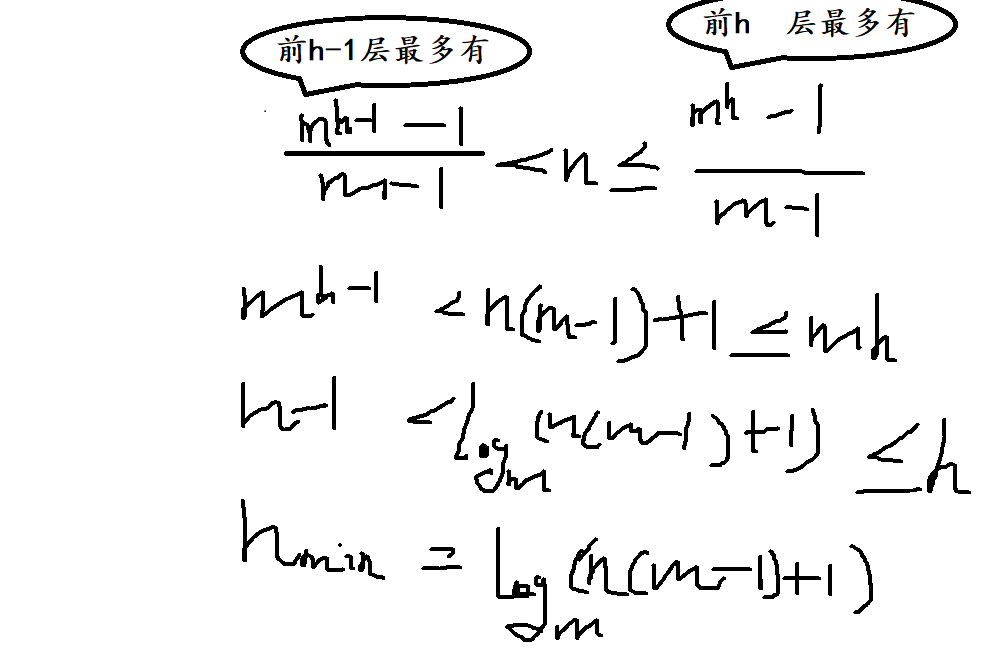 前h-1层最多有 前h 层最多有
m^{h-1} - 1 / m-1 < n ≤ m^h - 1 / m-1
m^{h-1} < n(m-1)+1 ≤ mh
h-1 < log_m (n(m-1)+1) ≤ h
h_min = log_m (n(m-1)+1)